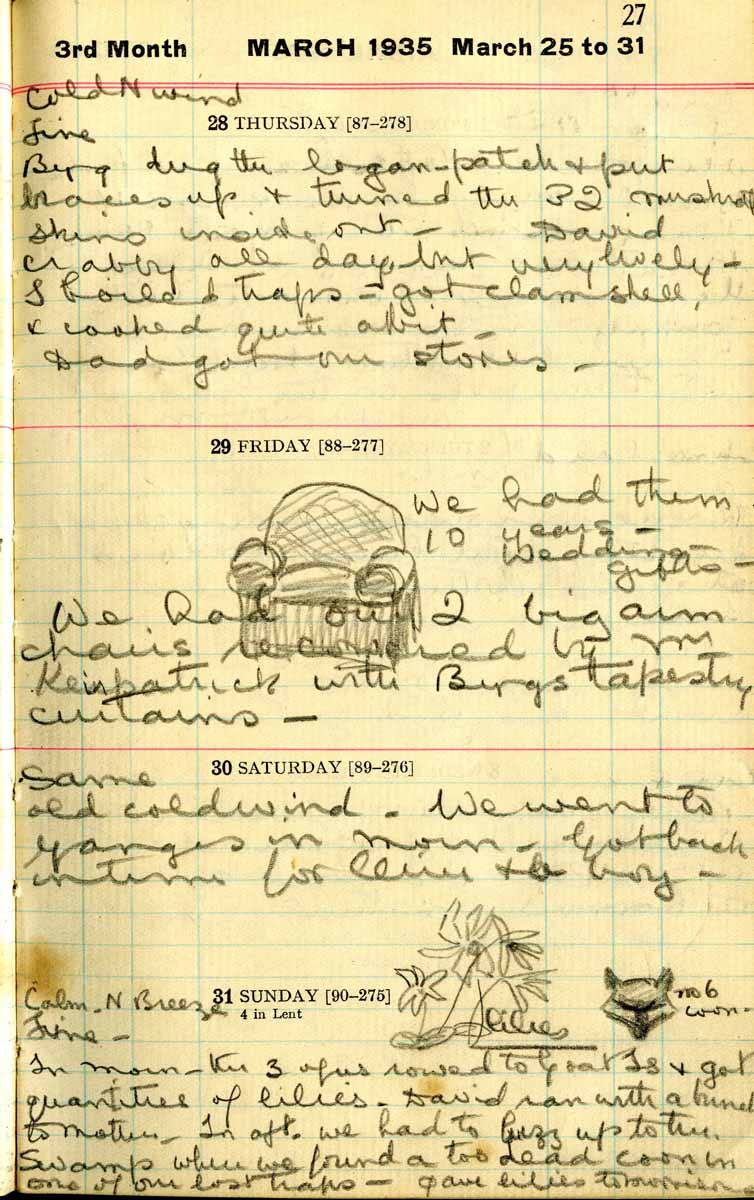 27
3rd Month MARCH 1935 March 25 to 31
Cold N wind
28 THURSDAY [87–278]
Fine
Berg dug the logan-patch & put
braces up & turned the 32 muskrat
skins inside out – David
crabby all day, but very lively –
I boiled traps – got clam shell,
& cooked quite a bit –
Dad got our stores –
29 FRIDAY [88–277]
We had them
10 years –
Wedding
gifts –
We had our 2 big arm
chairs recovered by Mr
with Bergs tapestry
curtains –
30 SATURDAY [89–276]
Same
old cold wind – We went to
Ganges in morn – Got back
in time for & boy –
Calm – N Breeze
31 SUNDAY [90–275]
4 in Lent
Fine –
lilies
no 6
coon –
In morn – the 3 of us rowed to Goat Is & got
quantities of lilies – David ran with a bunch
to mother – In aft. we had to buzz up to the
Swamp where we found a too dead coon in
one of our lost traps – Gave lilies to